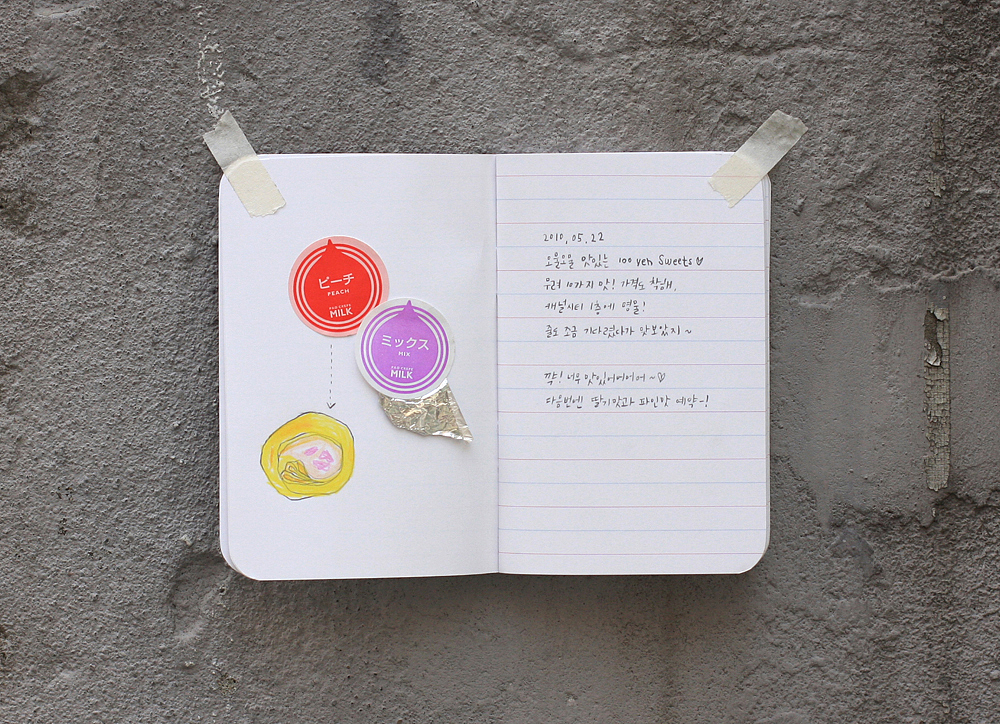 ピーチ
PEACH
MILK
ミックス
MIX
MILK
2010.05.22
오물오물 맛있는 100 yen Sweets♡
무려 10가지 맛! 가격도 착해.
캐널시티 1층에 명물!
줄도 조금 기다렸다가 맛보았지~
꺅! 너무 맛있어버어어~♡
다음번엔 딸기맛과 파인맛 예약~!